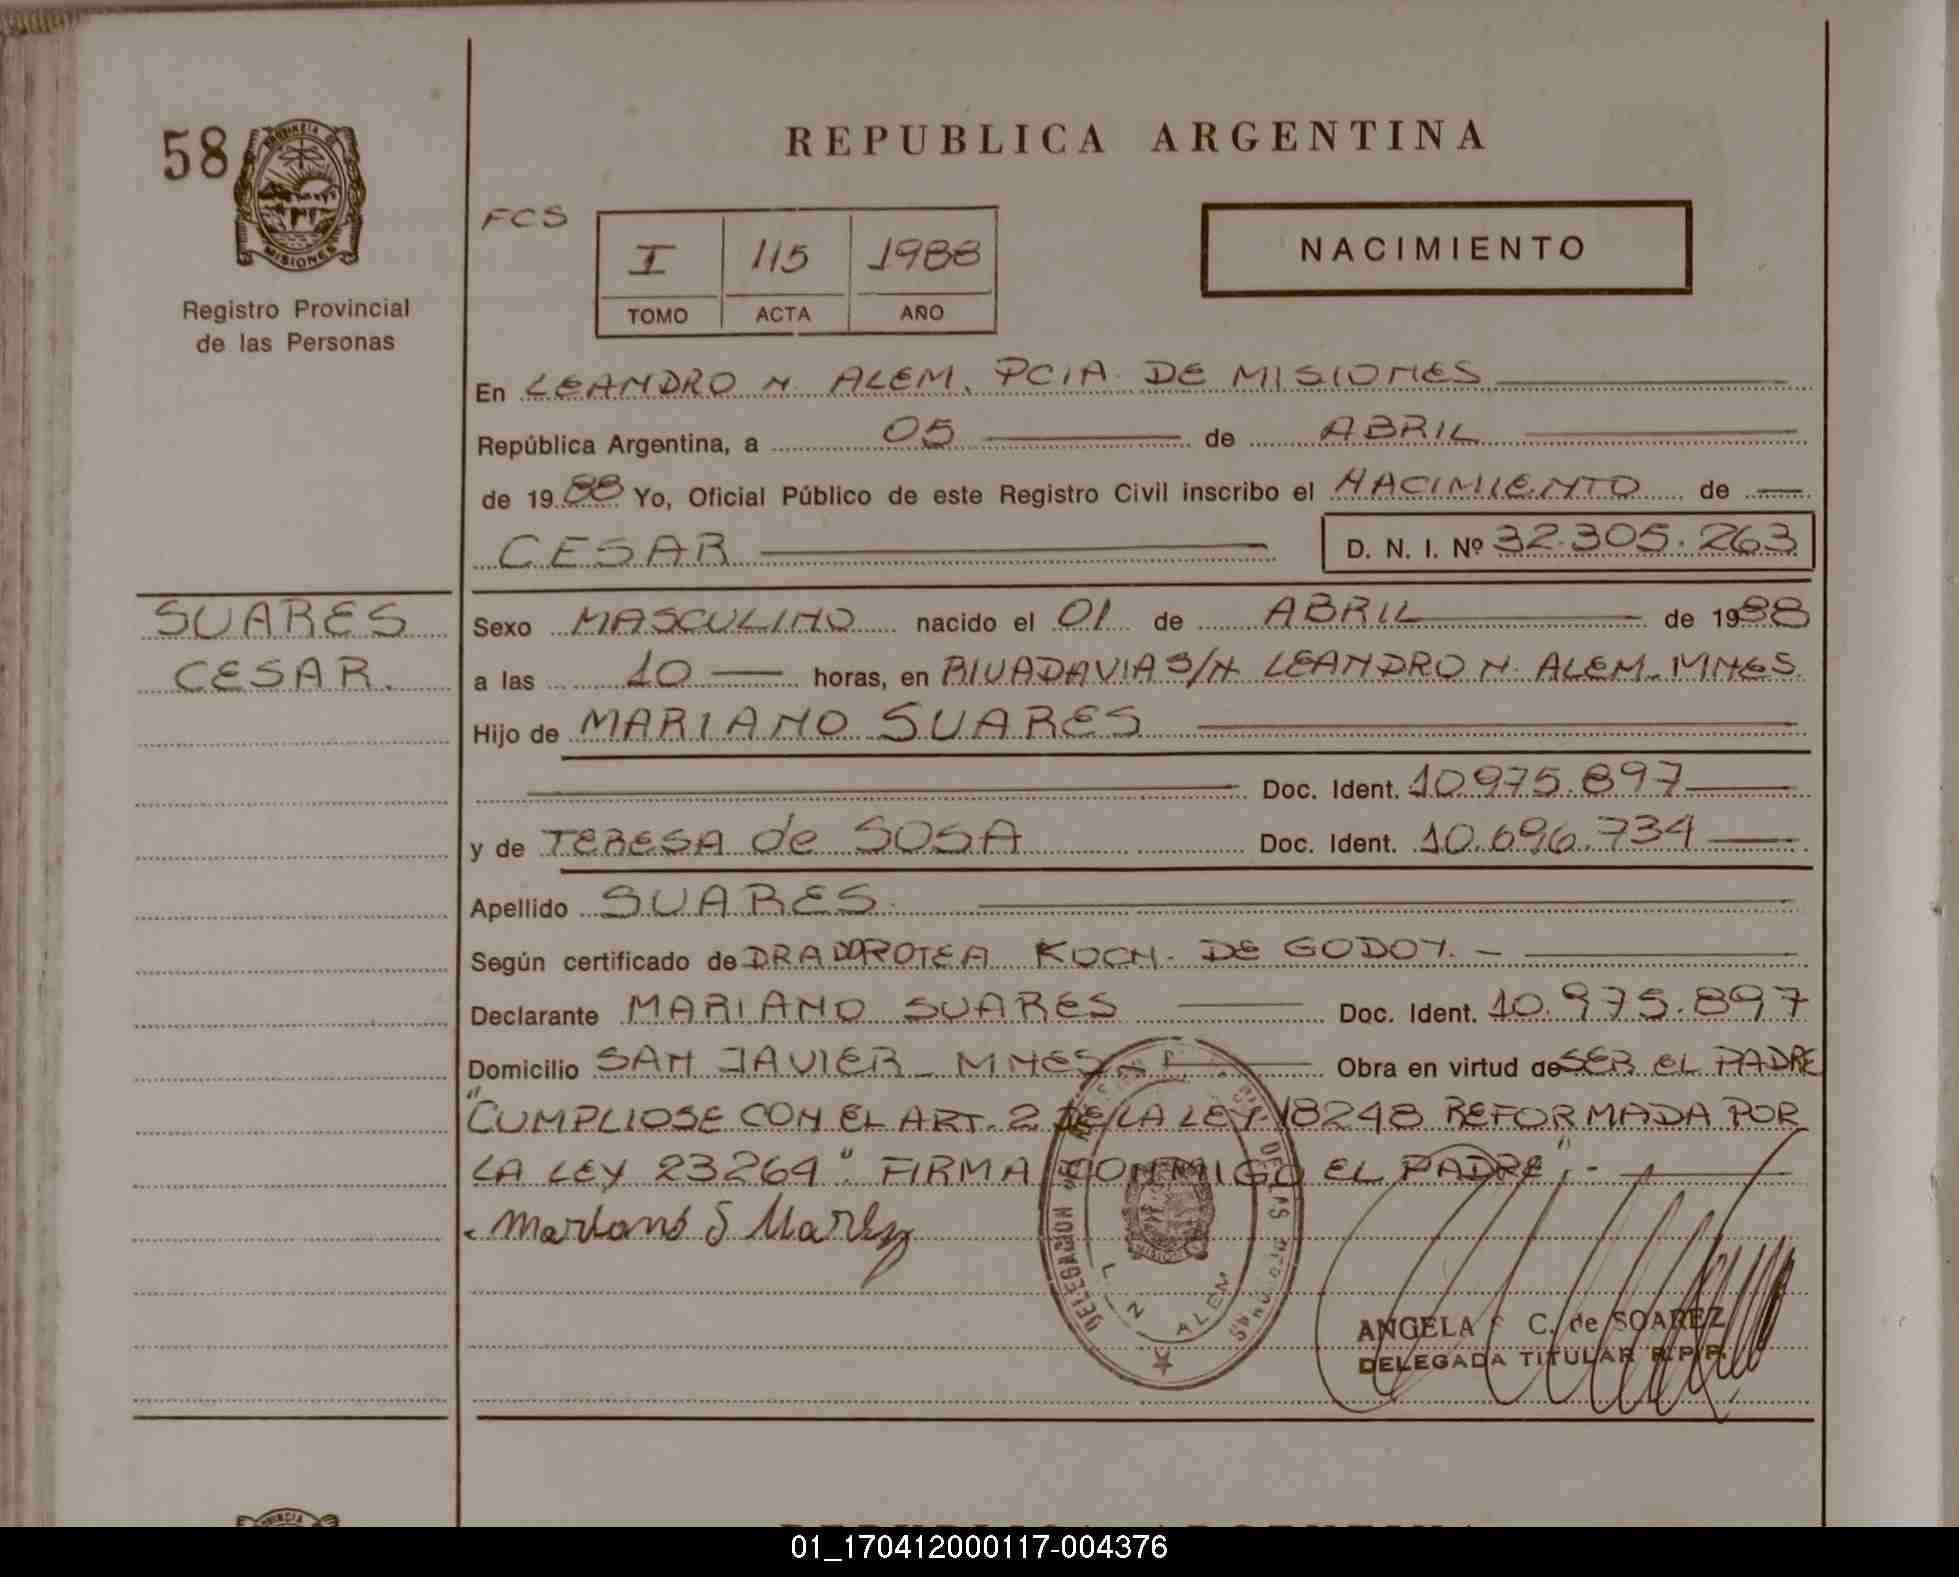 58
PROVINCIA D
MISIONES
Registro Provincial
de las Personas
REPUBLICA ARGENTINA
FCS
I 115 1988
TOMO ACTA AÑO
NACIMIENTO
En LEANDRO N. ALEM. PCIA. DE MISIONES
República Argentina, a 05 de ABRIL
de 1988 Yo, Oficial Público de este Registro Civil inscribo el NACIMIENTO de
CESAR D. N. I. Nº 32.305.263
SUARES
CESAR.
Sexo MASCULINO nacido el 01 de ABRIL de 1988
a las 10 horas, en RIVADAVIA S/N LEANDRO N. ALEM. MNES.
Hijo de MARIANO SUARES
Doc. Ident. 10.975.897
y de TERESA de SOSA Doc. Ident. 10.696.734
Apellido SUARES.
Según certificado de DRA DOROTEA KOCH. DE GODOY. -
Declarante MARIANO SUARES Doc. Ident. 10.975.897
Domicilio SAN JAVIER - MNES Obra en virtud de SER EL PADRE
"CUMPLIOSE CON EL ART. 2 DE LA LEY 18248 REFORMADA POR
LA LEY 23264". FIRMA CONMIGO EL PADRE". -
DELEGACION DEL
DE LAS
L N ALEM
ANGELA C. de SOAREZ
DELEGADA TITULAR R.P.P.
01_170412000117-004376